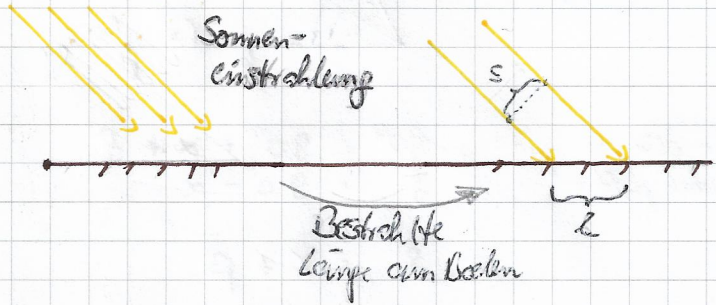 Sonnen-
einstrahlung
s
Bestrahlte
Länge am Boden
l